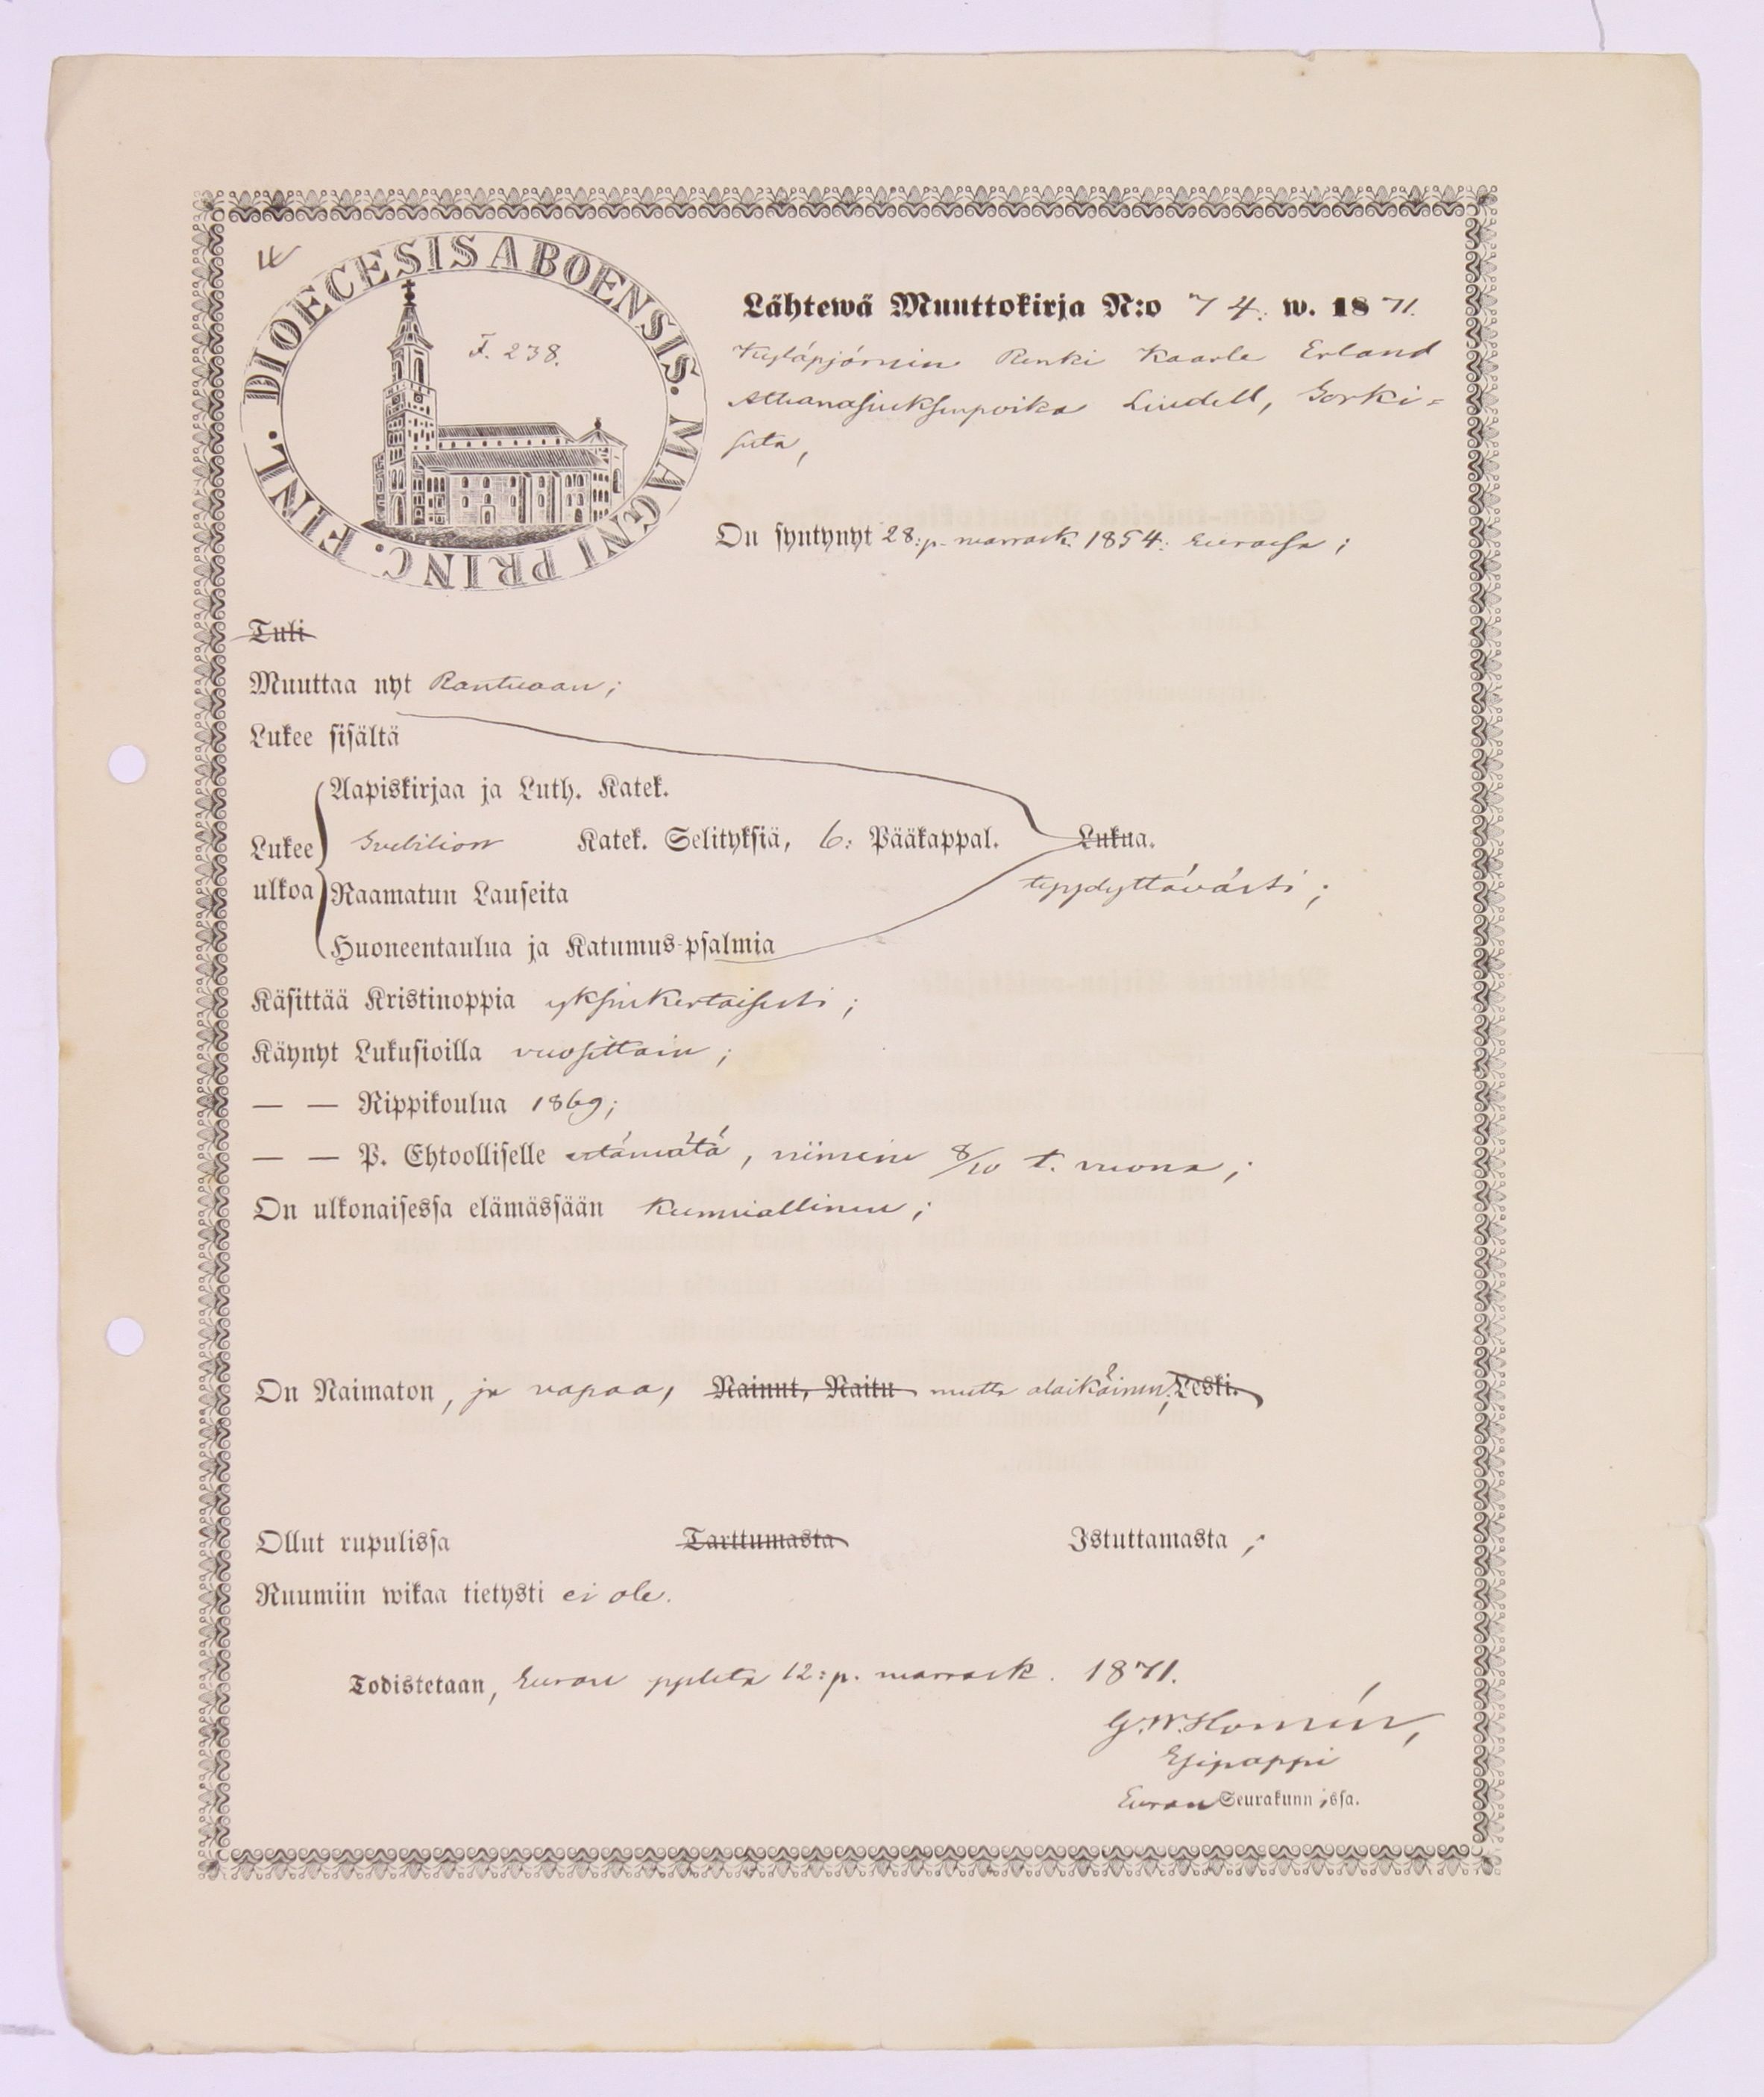 DIOECESIS ABOENSIS. MAGNI PRINC. FINL.
F. 238.
Lähtewä Muuttokirja N:o 74. w. 1871.
Kyläpjörnin Renki Kaarle Erland
Athanasiuksenpoika Lindell, Sorki=
sista,
On syntynyt 28:p. marrask. 1854: Eurassa;
Tuli
Muuttaa nyt
Lukee sisältä
Aapiskirjaa ja Luth. Katek.
Lukee ulkoa Svebilion Katek. Selityksiä, 6: Pääkappal. Lukua.
tyydyttävästi;
Raamatun Lauseita
Huoneentaulua ja Katumus-psalmia
Käsittää Kristinoppia yksinkertaisesti;
Käynyt Lukusioilla vuosittain;
— — Rippikoulua 1869;
— — P. Ehtoolliselle estämätä, viimein 8/10 t. vuona;
On ulkonaisessa elämässään kunniallinen;
On Naimaton, ja vapaa, Nainut, Naitu mutta alaikäinen, Leski.
Ollut rupulissa Tarttumasta Istuttamasta;
Ruumiin wikaa tietysti ei ole.
Todistetaan, Euran pplsta 12:p. marrask. 1871.
G. W. Homén,
Esipappi
Euran Seurakunnissa.